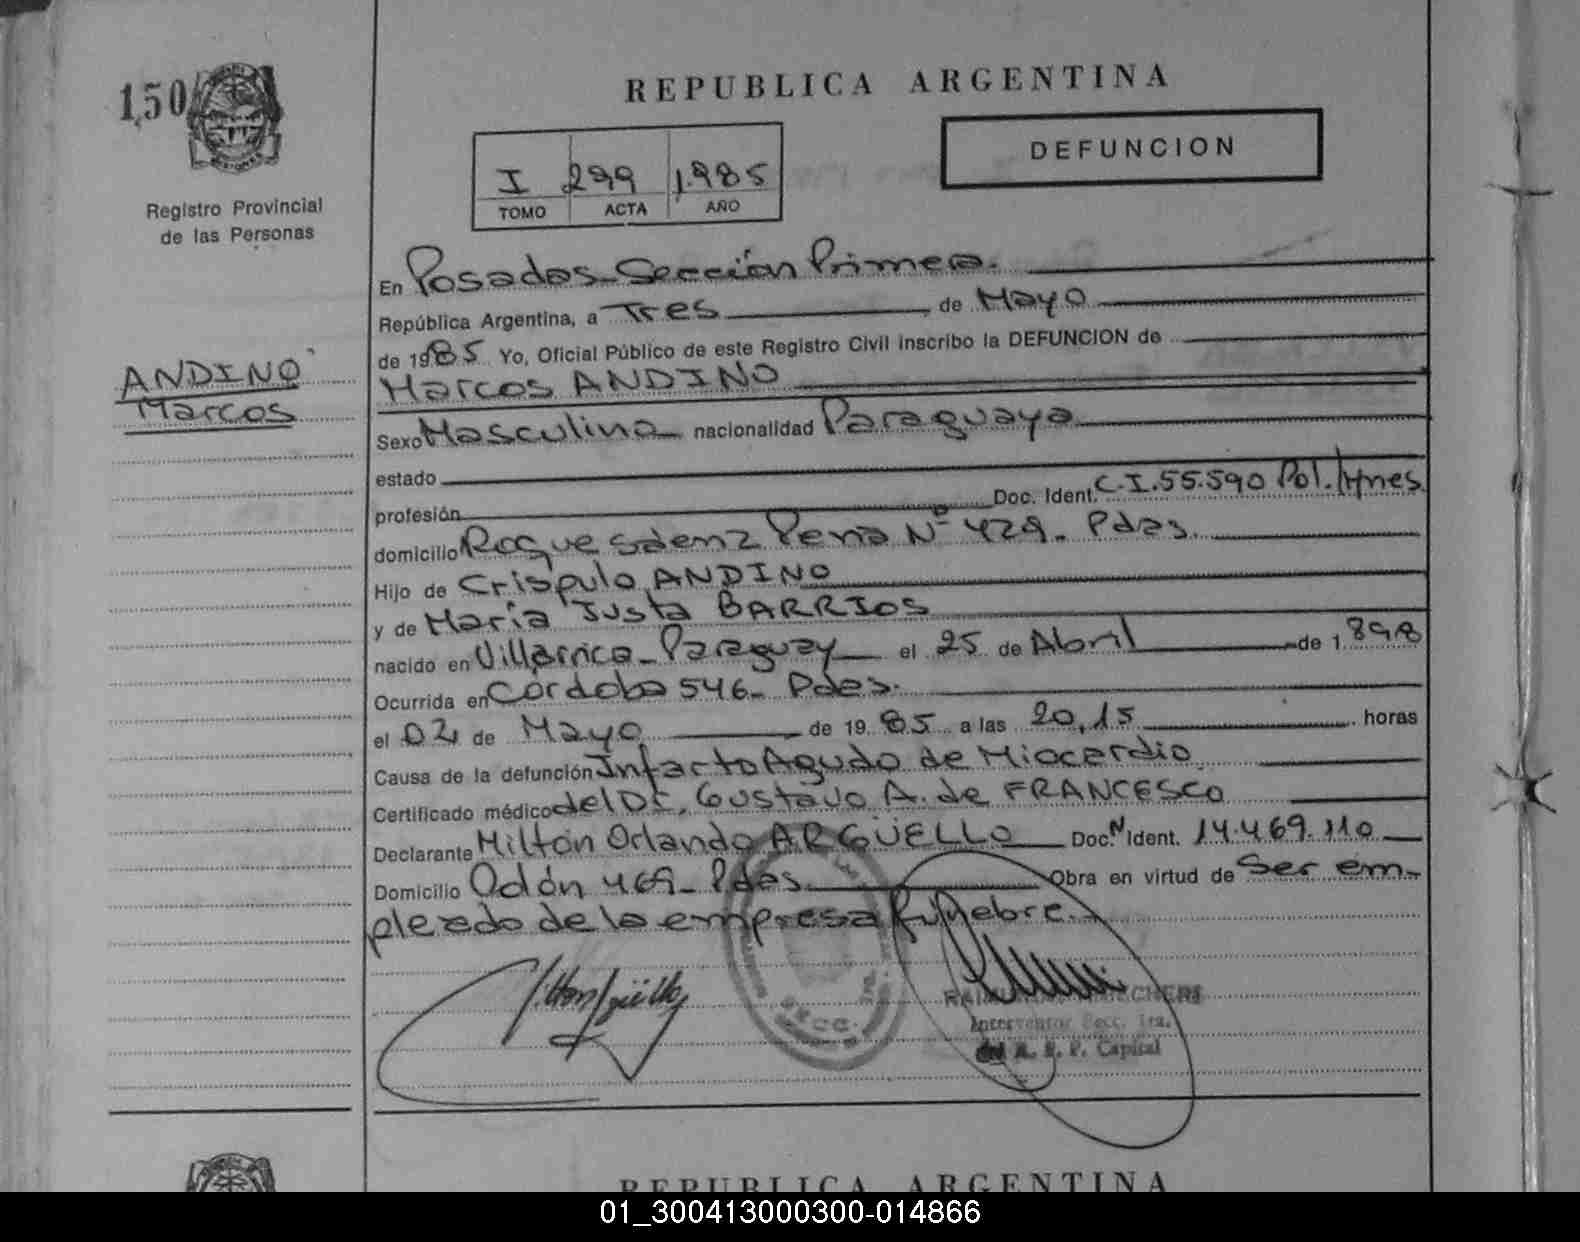 150
REPUBLICA ARGENTINA
DEFUNCION
I 299 1.985
TOMO ACTA AÑO
Registro Provincial
de las Personas
ANDINO
Marcos
En Posadas-Sección Primera.
República Argentina, a Tres de Mayo
de 1985 Yo, Oficial Público de este Registro Civil inscribo la DEFUNCION de
Marcos ANDINO
Sexo Masculino nacionalidad Paraguaya
estado
profesión Doc. Ident. C.I.55.590 Pol. Mnes.
domicilio Roque Saenz Pena Nº 429. Pdas.
Hijo de Crispulo ANDINO
y de Maria Justa BARRIOS
nacido en Villarrica-Paraguay el 25 de Abril de 1.898
Ocurrida en Córdoba 546- Pdas.
el 02 de Mayo de 1985 a las 20,15 horas
Causa de la defunción Infarto Agudo de Miocardio
Certificado médico del Dr. Gustavo A. de FRANCESCO
Declarante Milton Orlando ARGÜELLO Doc. N Ident. 14.469.110
Domicilio Odón 469- Pdas. Obra en virtud de Ser em-
pleado de la empresa fúnebre.
Interventor Secc. 1ra.
del R. P. P. Capital
REPUBLICA ARGENTINA
01_300413000300-014866